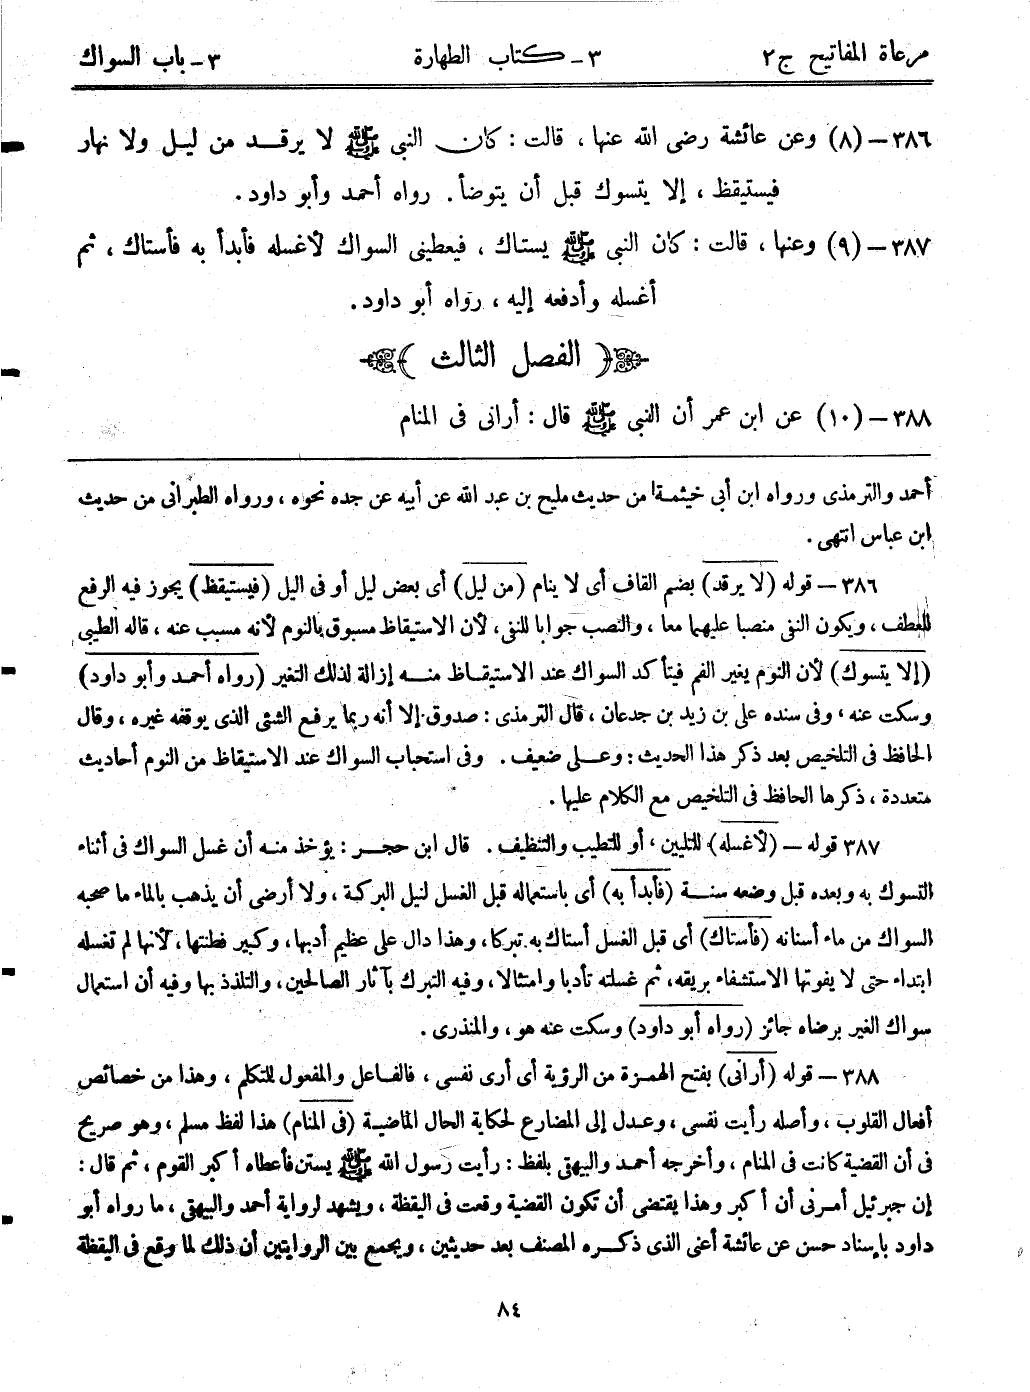 مرعاة المفاتيح ج٢ ٣ - كتاب الطهارة ٣ - باب السواك
٣٨٦ – (٨) وعن عائشة رضى الله عنها ، قالت : كان النبى ﷺ لا يرقد من ليل ولا نهار
فيستيقظ ، إلا يتسوك قبل أن يتوضأ . رواه أحمد وأبو داود .
٣٨٧ – (٩) وعنها ، قالت : كان النبى ﷺ يستاك ، فيعطينى السواك لأغسله فأبدأ به فأستاك ، ثم
أغسله وأدفعه إليه ، رواه أبو داود .
﴿ الفصل الثالث ﴾
٣٨٨ – (١٠) عن ابن عمر أن النبى ﷺ قال : أرانى فى المنام
أحمد والترمذى ورواه ابن أبي خيثمة من حديث مليح بن عبد الله عن أبيه عن جده نحوه ، ورواه الطبرانى من حديث
ابن عباس انتهى .
٣٨٦ – قوله (لا يرقد) بضم القاف أى لا ينام (من ليل) أى بعض ليل أو فى اليل (فيستيقظ) يجوز فيه الرفع
للعطف ، ويكون النفى منصبا عليهما معا ، والنصب جوابا للنفى، لأن الاستيقاظ مسبوق بالنوم لأنه مسبب عنه ، قاله الطيبى
(إلا يتسوك) لأن النوم يغير الفم فيتأكد السواك عند الاستيقاظ منه إزالة لذلك التغير (رواه أحمد وأبو داود)
وسكت عنه ، وفى سنده على بن زيد بن جدعان ، قال الترمذى : صدوق إلا أنه ربما يرفع الشئى الذى يوقفه غيره ، وقال
الحافظ فى التلخيص بعد ذكر هذا الحديث : وعلى ضعيف . وفى استحباب السواك عند الاستيقاظ من النوم أحاديث
متعددة ، ذكرها الحافظ فى التلخيص مع الكلام عليها .
٣٨٧ قوله – (لأغسله) للتليين ، أو للتطيب والتنظيف . قال ابن حجر : يؤخذ منه أن غسل السواك فى أثناء
التسوك به وبعده قبل وضعه سنة (فأبدأ به) أى باستعماله قبل الغسل لنيل البركة ، ولا أرضى أن يذهب بالماء ما صحبه
السواك من ماء أسنانه (فأستاك) أى قبل الغسل أستاك به تبركا، وهذا دال على عظيم أدبها، وكبير فطنتها ، لأنها لم تغسله
ابتداء حتى لا يفوتها الاستشفاء بريقه، ثم غسلته تأدبا وامتثالا، وفيه التبرك بآثار الصالحين، والتلذذ بها وفيه أن استعمال
سواك الغير برضاه جائز (رواه أبو داود) وسكت عنه هو ، والمنذرى .
٣٨٨ – قوله (أرانى) بفتح الهمزة من الرؤية أى أرى نفسى ، فالفاعل والمفعول للتكلم ، وهذا من خصائص
أفعال القلوب ، وأصله رأيت نفسى ، وعدل إلى المضارع لحكاية الحال الماضية (فى المنام) هذا لفظ مسلم ، وهو صريح
فى أن القضية كانت فى المنام ، وأخرجه أحمد والبيهقى بلفظ : رأيت رسول الله ﷺ يستن فأعطاه أكبر القوم ، ثم قال :
إن جبرئيل أمرنى أن أكبر وهذا يقتضى أن تكون القضية وقعت فى اليقظة ، ويشهد لرواية أحمد والبيهقى ، ما رواه أبو
داود بإسناد حسن عن عائشة أعنى الذى ذكره المصنف بعد حديثين ، ويجمع بين الروايتين أن ذلك لما وقع فى اليقظة
٨٤